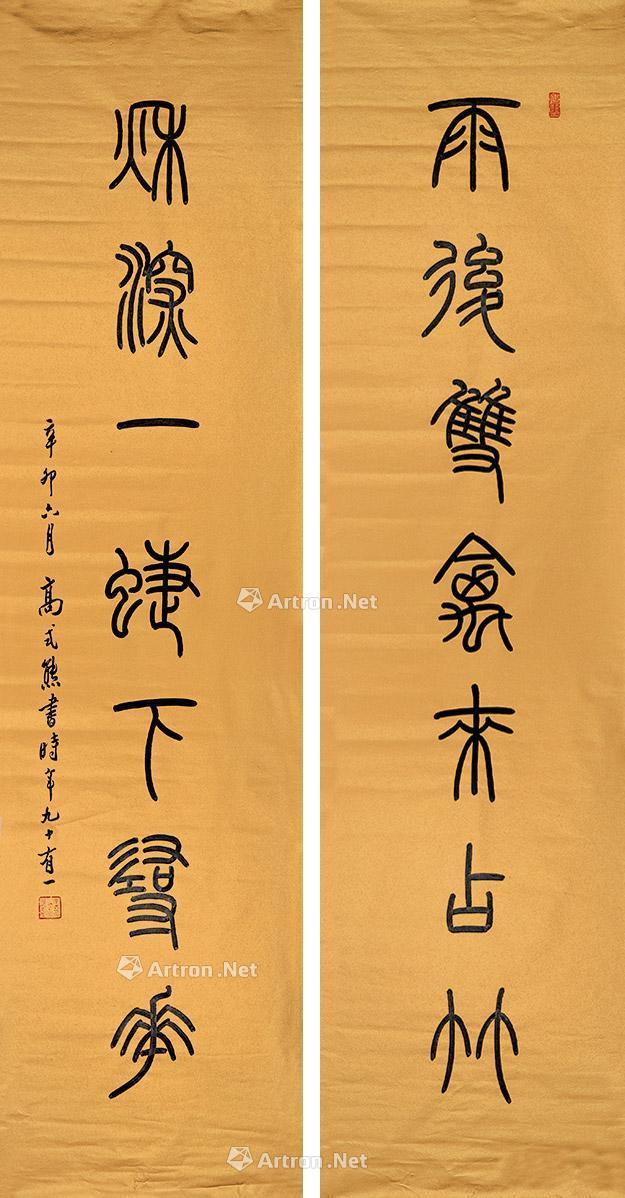 雨後雙禽來占竹
秌深一蜨下尋華
辛卯六月 高式熊書時年九十有一
Artron.Net
Artron.Net
Artron.Net